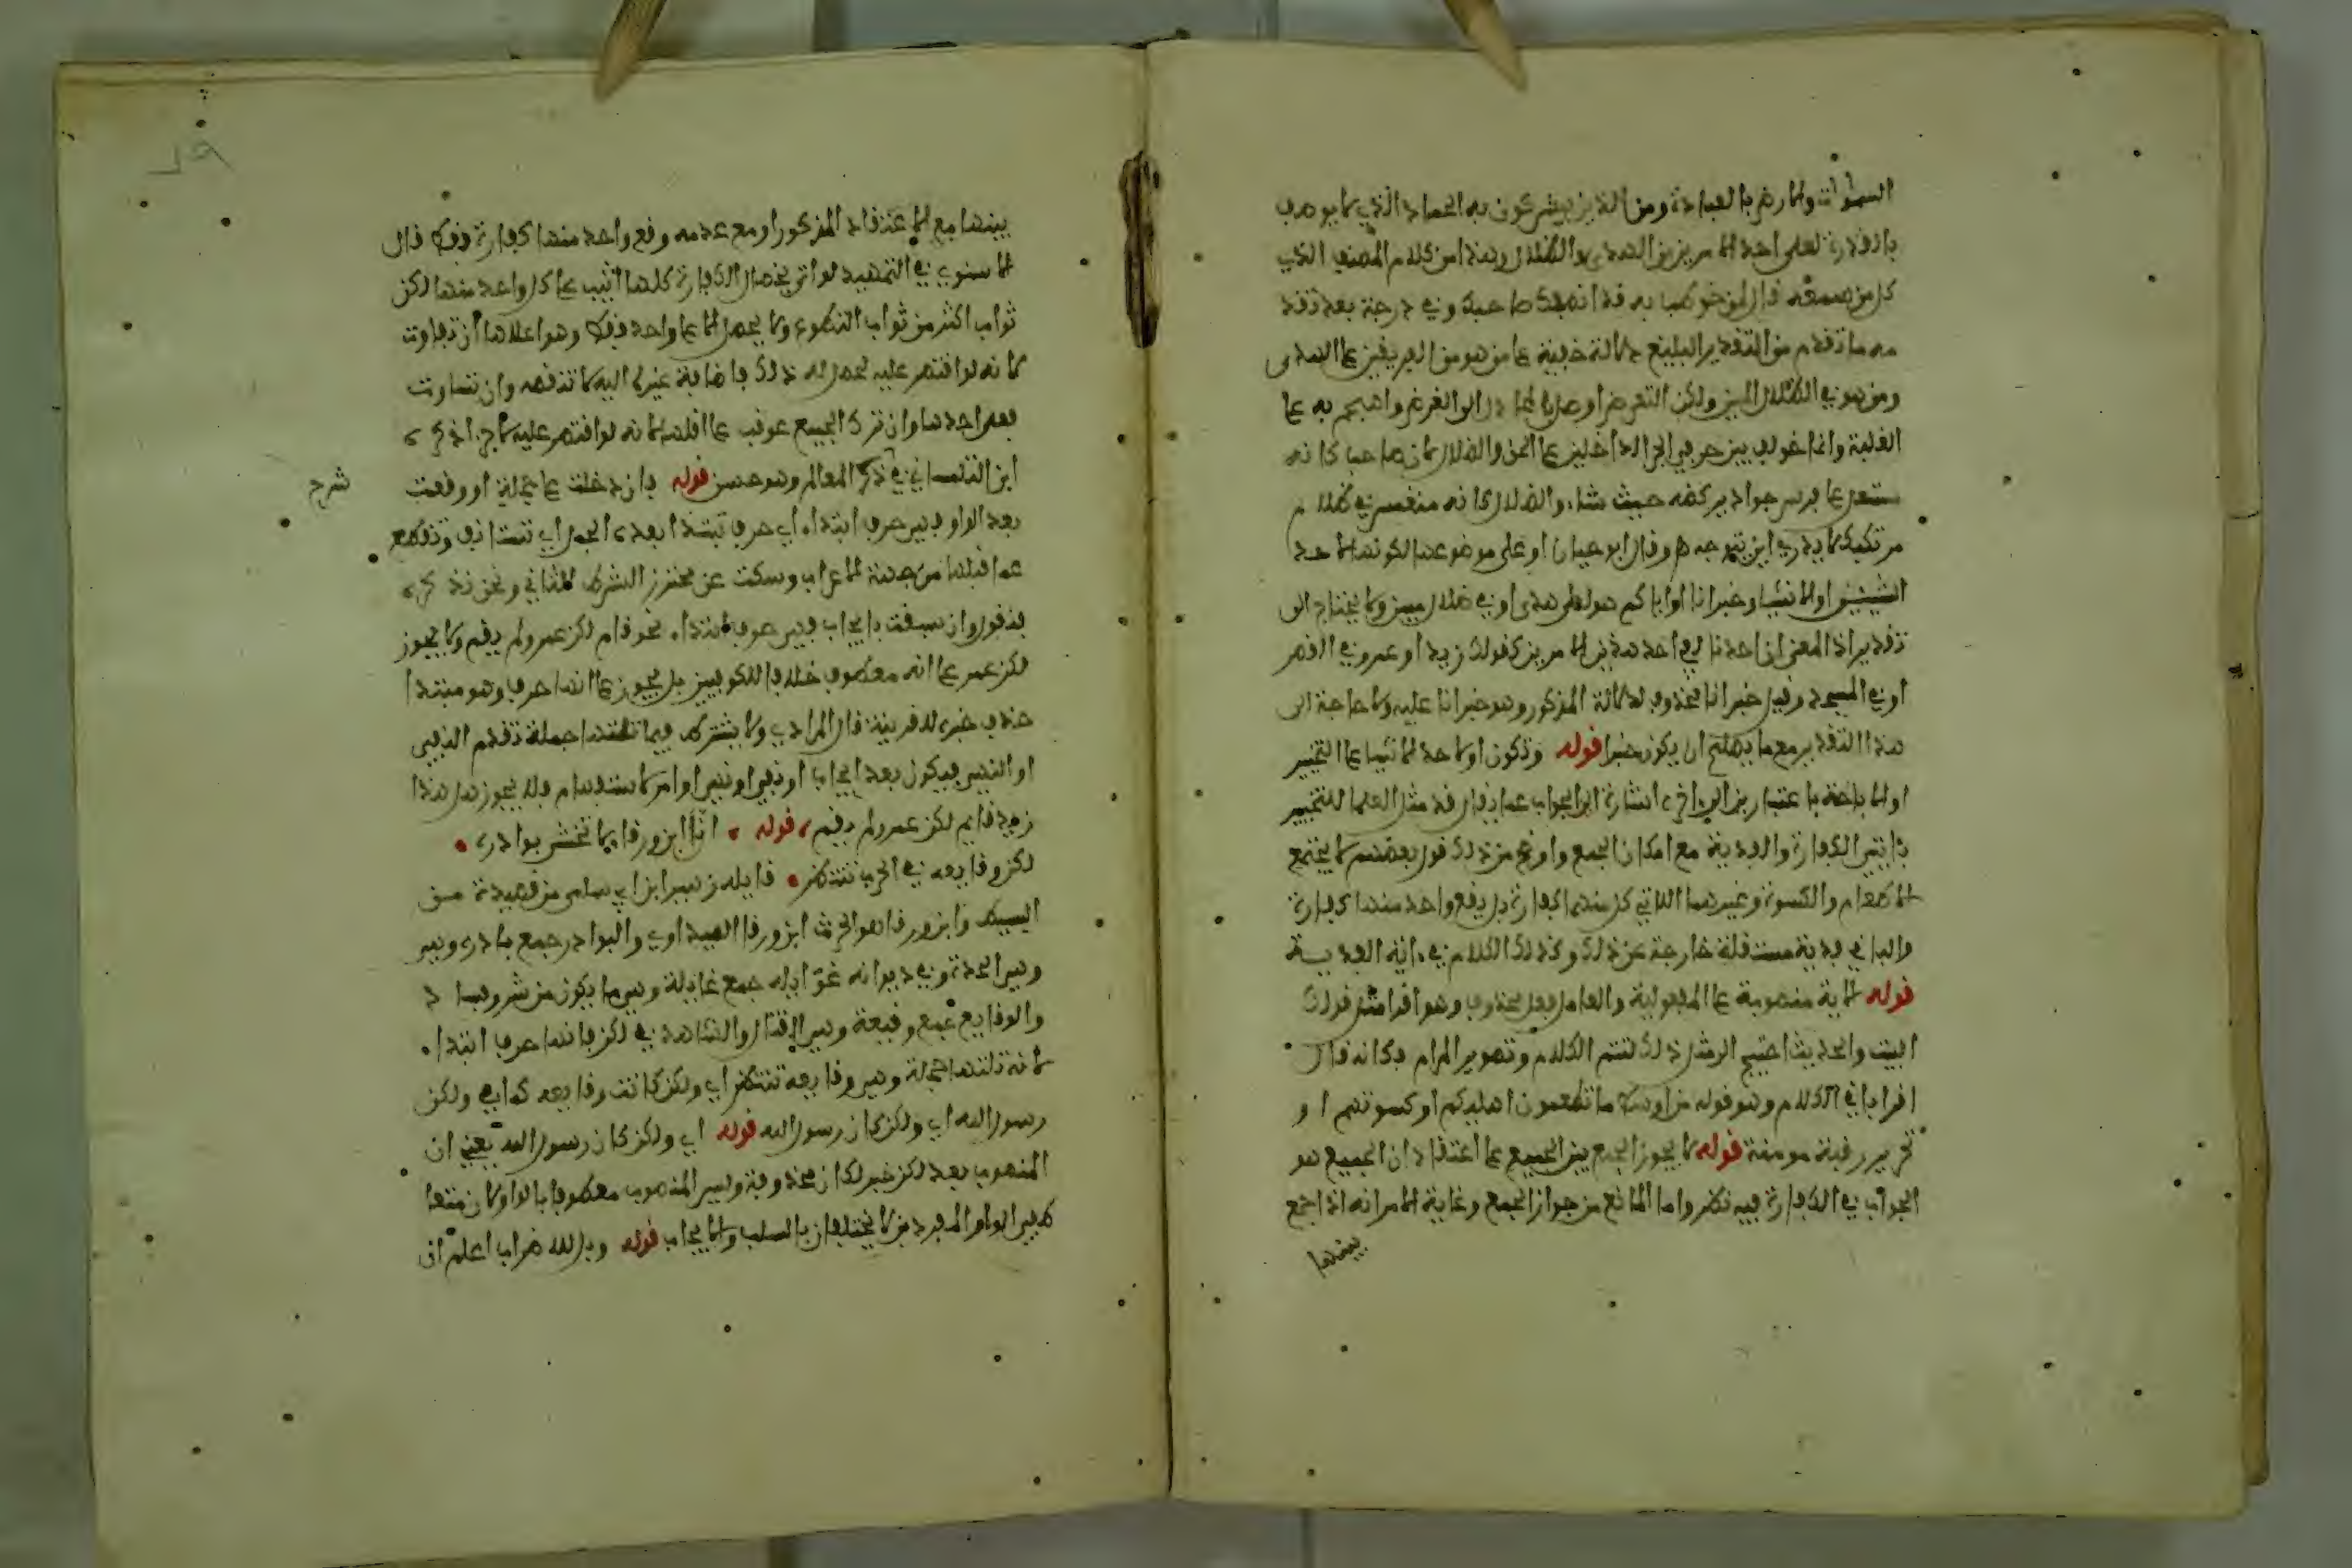 السموات والارض بالعبادة ومن الذين يشركون به الجماد الذي لا يوصف
بالقدرة لعلى احد الامرين من الهدى والضلال وهذا من كلام المصنف الذي
كل من سمعه قال لمن خوطب به قد انصفك صاحبك وفي درجة بعد تقد
مه ما تقدم من التقدير البليغ دلالة خفية على من هو من الفريقين على الهدى
ومن هو في الضلال المبين ولكن التعريض اوصل بالمجادل الى الغرض واهجم به على
الغلبة وانما خولف بين حرفي الجر الداخلين على الحق والضلال لان صاحب كانه
مستعل على فرس جواد يركضه حيث شاء والضلال كانه منغمس في ظلام
مرتبك لا يدري اين يتوجه وقال ابو حيان او على موضوعها لكونها لاحد
الشيئين او الاشياء وخبر انا او اياكم هو لعلى هدى او في ضلال مبين ولا يحتاج الى
تقدير اذ المعنى ان احدنا لفي احد هذين الامرين كقولك زيد او عمرو في القصر
او في المسجد وقيل خبر انا محذوف لدلالة المذكور وهو خبر انا عليه ولا حاجة الى
هذا التقدير مع ما يصلح ان يكون خبرا قوله وتكون او لاحد الاشياء على التخيير
او الاباحة باعتبارين الى اخره اشارة الى الجواب عما يقال قد مثل العلما للتخيير
بايتي الكفارة والفدية مع امكان الجمع واوضح من ذلك قول بعضهم لا يجتمع
الاطعام والكسوة وغيرهما اللاتي كل منهما كفارة بل يقع واحد منها كفارة
والباقي قربة مستقلة خارجة عن ذلك وكذلك الكلام في اية الفدية
قوله الاية منصوبة على المفعولية والعامل فعل محذوف وهو اقرا مثل قولك
البيت والحديث احتيج الى مثل ذلك لتتم الكلام وتصوير المرام فكانه قال
اقرا باقي الكلام وهو قوله من اوسط ما تطعمون اهليكم او كسوتهم او
تحرير رقبة مومنة قوله لا يجوز الجمع بين الجميع على اعتقاد ان الجميع هو
الجواب في الكفارة فيه نظر واما المانع من جواز الجمع وغاية الامر انه اذا جمع
بينها
بينها مع الاعتقاد المذكور او مع عدمه وقع واحد منها كفارة فقط قال
الاسنوي في التمهيد لو اتى بخصال الكفارة كلها اثيب على كل واحد منها لكن
ثواب اكثر من ثواب التطوع ولا يحصل الا على واحد فقط وهو اعلاها ان تفاوت
لانه لو اقتصر عليه لحصل له ذلك فاضافة غيره اليه لا تنقصه وان تساوت
فعلى احدها وان ترك الجميع عوقب على اقلها لانه لو اقتصر عليه لاجزا ذكره
ابن التلمساني في شرح المعالم وهو حسن قوله فان دخلت على جملة او وقعت
شرح
بعد الواو فهي حرف ابتداء اي حرف تبتدا بعده الجمل اي تستانف وتقطع
عما قبلها من جهة الاعراب وسكت عن محترز الشرط الثاني ونحن نذكره
فنقول وان سبقت بايجاب فهي حرف ابتداء نحو قام لكن عمرو لم يقم ولا يجوز
لكن عمر على انه معطوف خلافا للكوفيين بل يجوز على انها حرف وهو مبتدا
حذف خبره لقرينة قال المرادي ولا يشترط فيما تلتها جملة تقدم النفي
او النهي فيكون بعد ايجاب او نفي او نهي او امر لا استفهام فلا يجوز هل هذا
زيد قايم لكن عمرو لم يقم، قوله، ان ابن ورقا لا تخشى بوادره •
لكن وقايعه في الحرب تنتظر • قايله زهير ابن ابي سلمى من قصيدة من
البسيط وابن ورقا هو الحرث ابن ورقا الصيداوي والبوادر جمع بادرة وهي
وهي الحدة وفي ديوانه غوايله جمع غايلة وهي ما يكون من شر وفساد
والوقايع جمع وقيعة وهي القتال والشاهد في لكن فانها حرف ابتداء
لانه تلتها جملة وهي وقايعه تنتظر اي ولكن كانت وقايعه كما في ولكن
رسول الله اي ولكن كان رسول الله قوله اي ولكن كان رسول الله يعني ان
المنصوب بعد لكن خبر لكان محذوفة وليس المنصوب معطوفا بالواو لان متعا
طفي الواو المفردين لا يختلفان بالسلب والايجاب قوله وبل لله ضراب اعلم ان